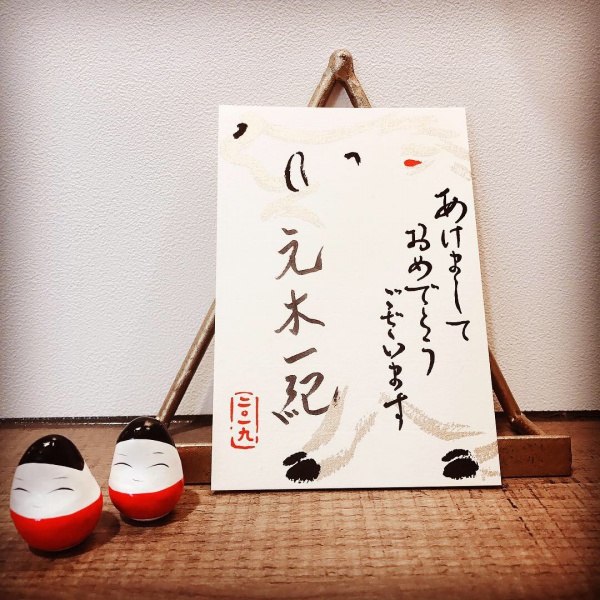 あけまして
おめでとう
ございます
元木一紀
二〇一九